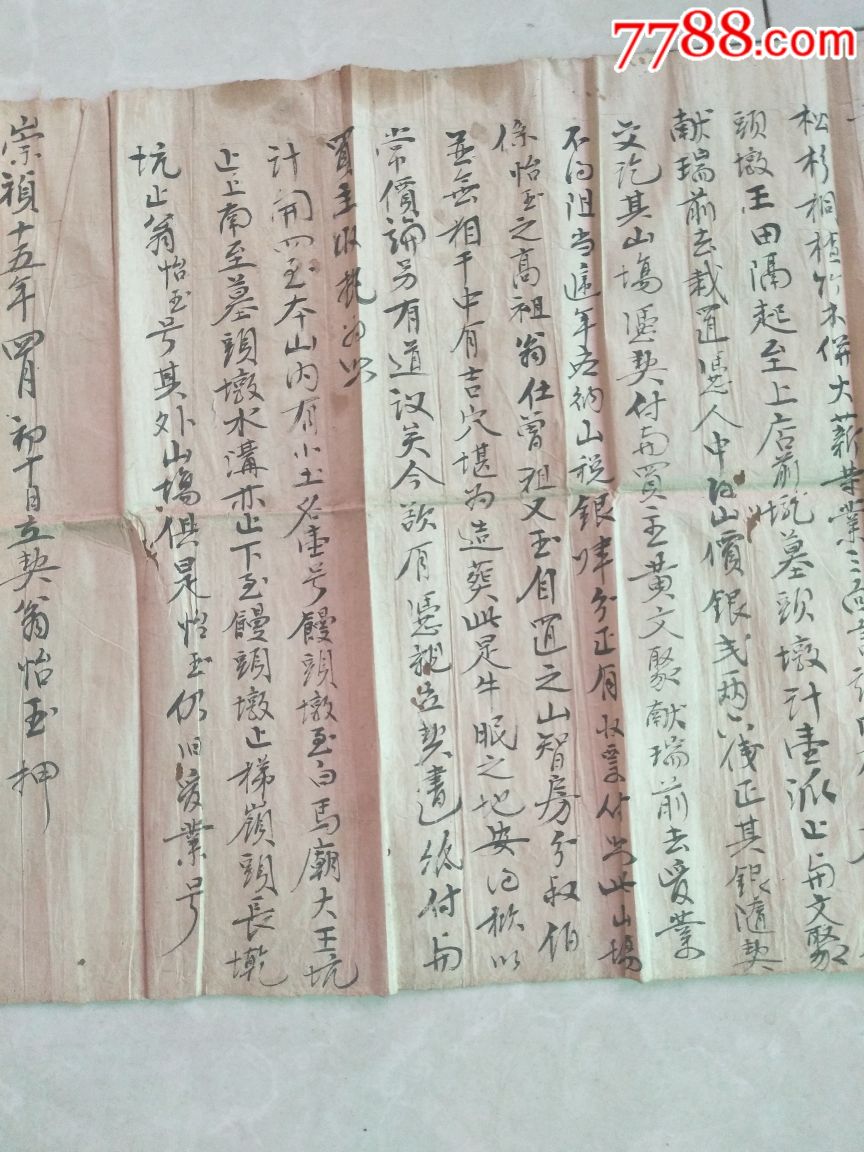 7788.com
松杉桐楂竹木併大薪等業三
頭墩王田隔起至上店前墘墓頭墩計壹派止與文聚
献瑞前去栽置憑人中得山價銀式兩六錢正其銀隨契
交訖其山塲憑契付與買主黄文聚献瑞前去受業
不得阻当遞年去納山税銀 分正有收票付照此山塲
係怡玉之高祖翁仕曾祖又玉自置之山智房分叔伯
並無相干中有吉穴堪為造葬此是牛眠之地安得概以
常價論另有道议矣今欲有憑親立契書邑紙付與
買主收執為照
計開四至本山内有小土名壹号饅頭墩至白馬廟大王坑
止上南至墓頭墩水溝亦止下至饅頭墩止梯嶺頭長墘
坑止翁怡玉号其外山塲俱是怡玉仍旧受業号
崇禎十五年四月初十日立契翁怡玉押